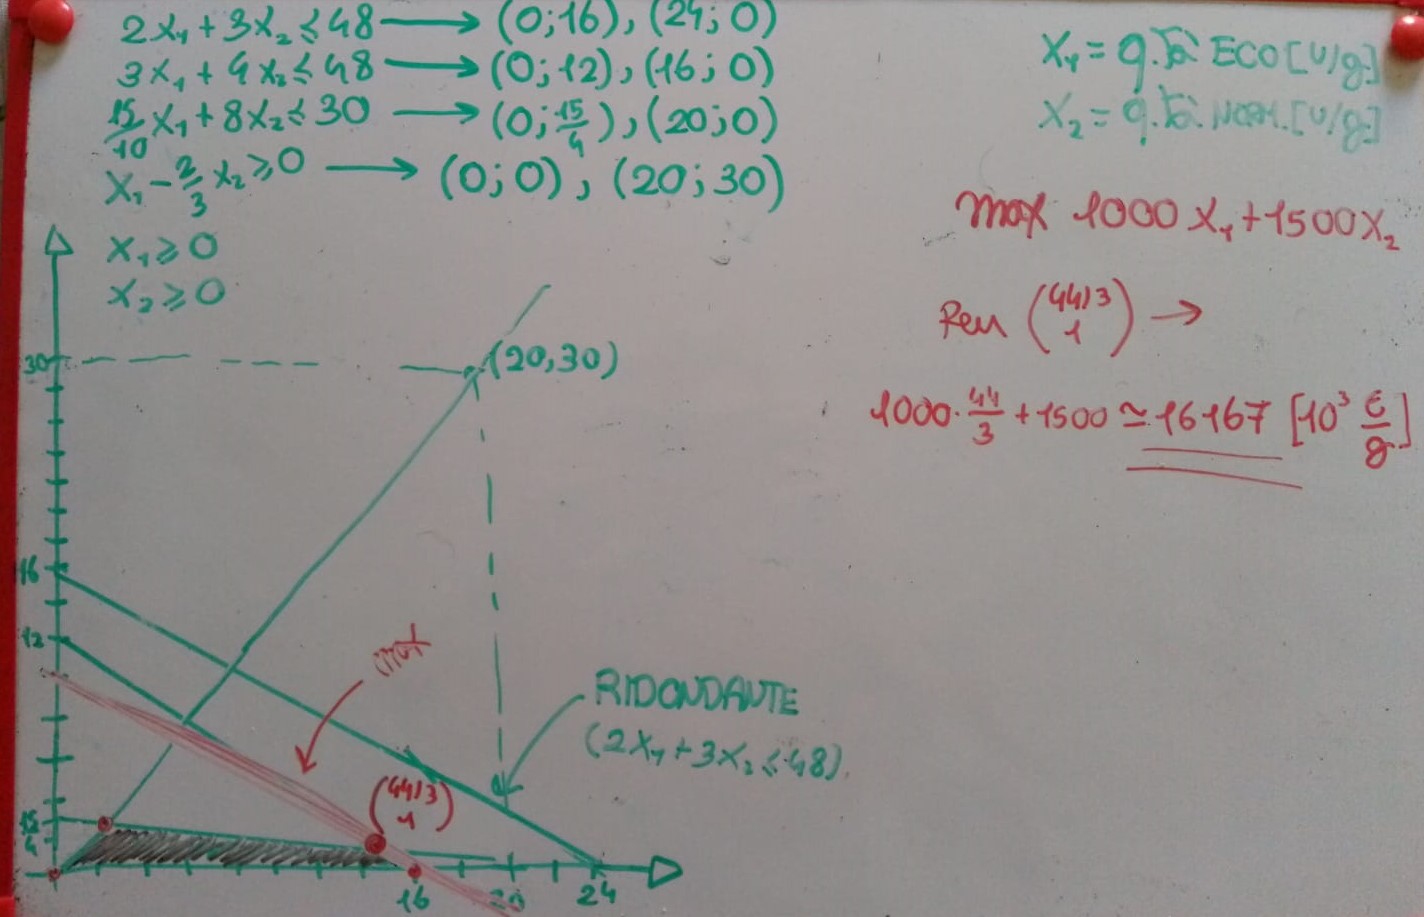 2x₁ + 3x₂ ≤ 48 → (0;16), (24;0)
3x₁ + 4x₂ ≤ 48 → (0;12), (16;0)
15/10 x₁ + 8x₂ ≤ 30 → (0; 15/4), (20;0)
x₁ - 2/3 x₂ ≥ 0 → (0;0), (20;30)
x₁ ≥ 0
x₂ ≥ 0
x₁ = q.tà ECO [U/g]
x₂ = q.tà NORM. [U/g]
max 1000 x₁ + 1500 x₂
Per (44/3 1) →
1000 · 44/3 + 1500 ≃ 16167 [10³ €/g]
30
(20,30)
16
12
RIDONDANTE
(2x₁ + 3x₂ ≤ 48)
(44/3 1)
15/4
16
20
24